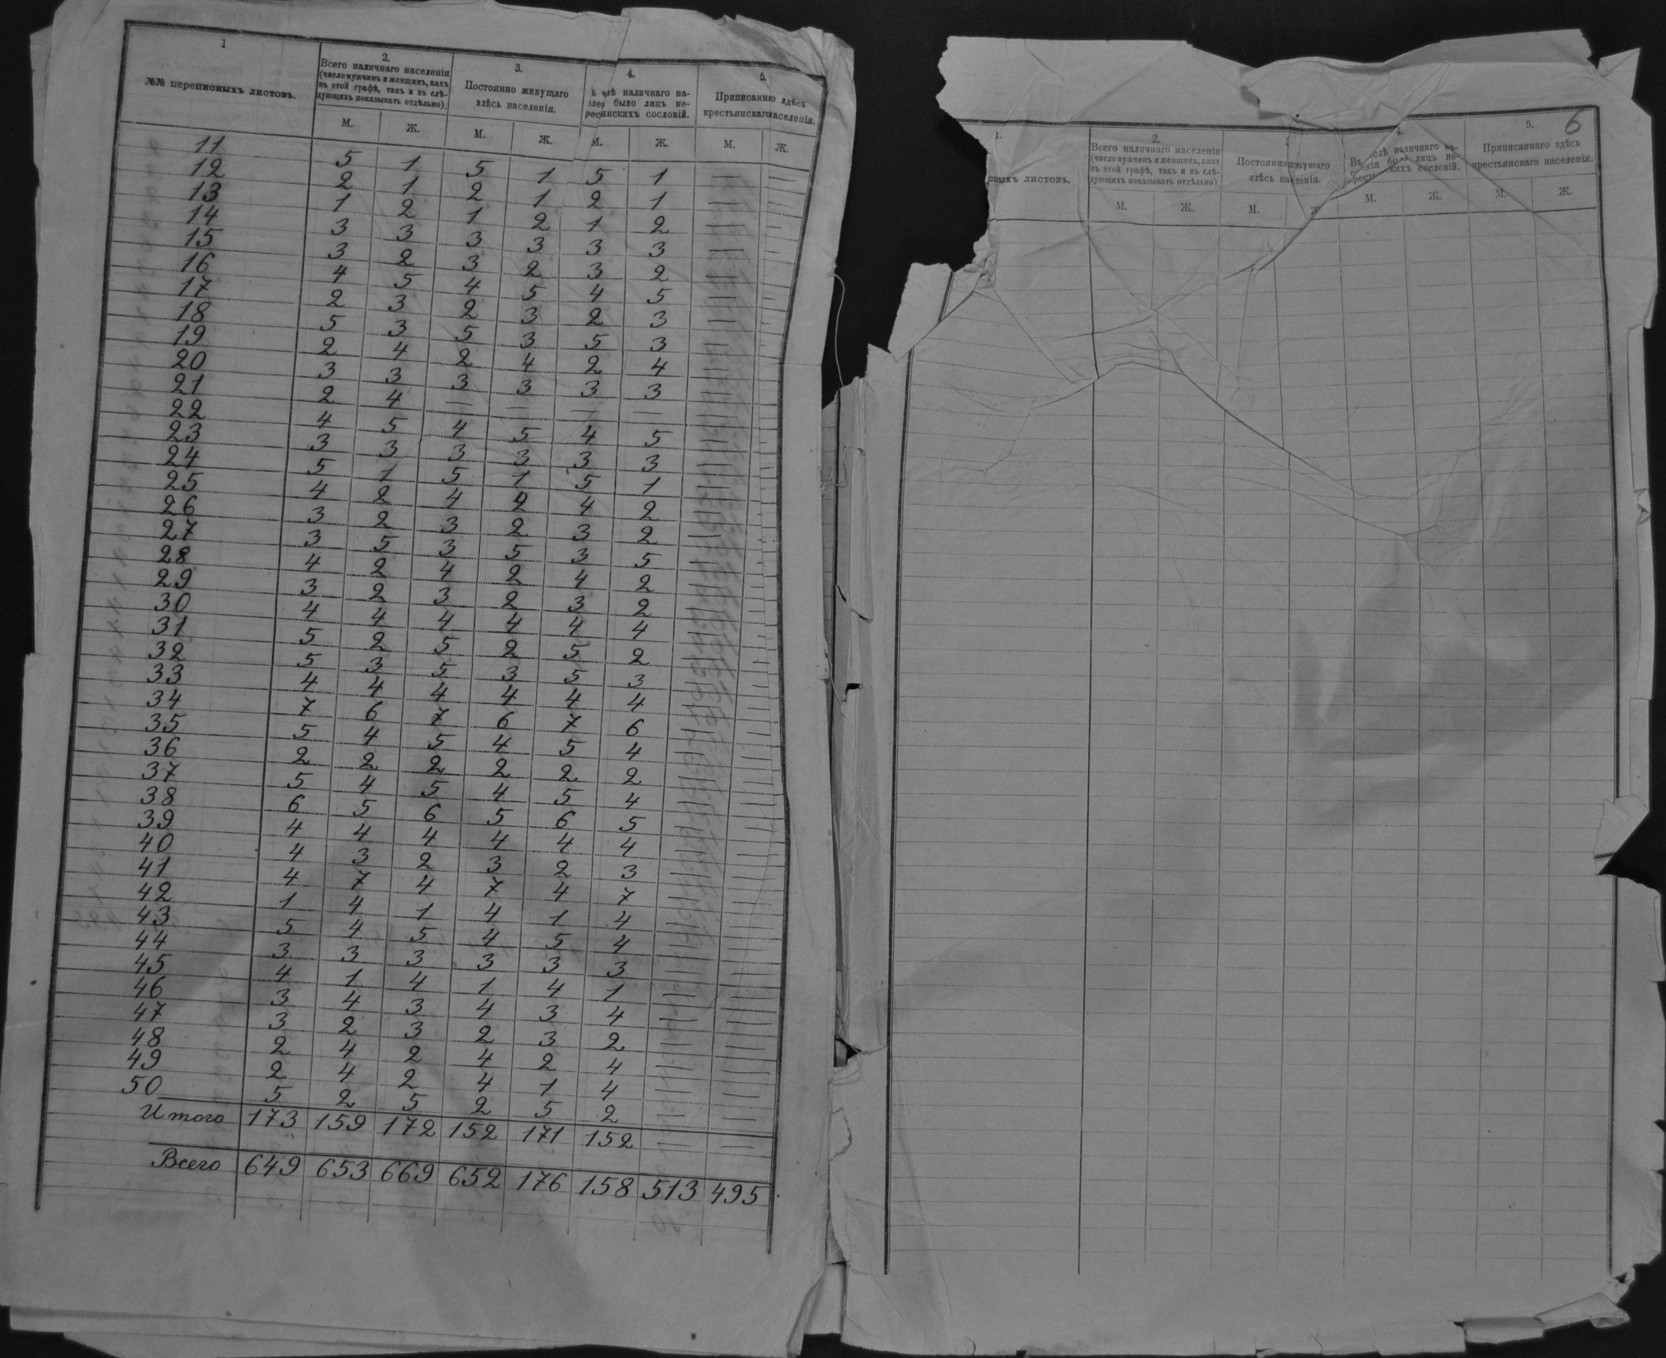 1
2.
3.
4.
5.
№№ переписныхъ листовъ.
Всего наличнаго населенія
(число мужчинъ и женщинъ, какъ
въ этой графѣ, такъ и въ слѣ-
дующихъ показывать отдѣльно).
Постоянно живущаго
здѣсь населенія.
наличнаго на-
было лицъ не-
сословій.
Приписаннаго здѣсь
крестьянскаго населенія.
М. Ж. М. Ж. М. Ж. М. Ж.
11 5 1 5 1 5 1 — —
12 2 1 2 1 2 1 — —
13 1 2 1 2 1 2 — —
14 3 3 3 3 3 3 — —
15 3 2 3 2 3 2 — —
16 4 5 4 5 4 5 — —
17 2 3 2 3 2 3 — —
18 5 3 5 3 5 3 — —
19 2 4 2 4 2 4 — —
20 3 3 3 3 3 3 — —
21 2 4 — — — — — —
22 4 5 4 5 4 5 — —
23 3 3 3 3 3 3 — —
24 5 1 5 1 5 1 — —
25 4 2 4 2 4 2 — —
26 3 2 3 2 3 2 — —
27 3 5 3 5 3 5 — —
28 4 2 4 2 4 2 — —
29 3 2 3 2 3 2 — —
30 4 4 4 4 4 4 — —
31 5 2 5 2 5 2 — —
32 5 3 5 3 5 3 — —
33 4 4 4 4 4 4 — —
34 7 6 7 6 7 6 — —
35 5 4 5 4 5 4 — —
36 2 2 2 2 2 2 — —
37 5 4 5 4 5 4 — —
38 6 5 6 5 6 5 — —
39 4 4 4 4 4 4 — —
40 4 3 2 3 2 3 — —
41 4 7 4 7 4 7 — —
42 1 4 1 4 1 4 — —
43 5 4 5 4 5 4 — —
44 3 3 3 3 3 3 — —
45 4 1 4 1 4 1 — —
46 3 4 3 4 3 4 — —
47 3 2 3 2 3 2 — —
48 2 4 2 4 2 4 — —
49 2 4 2 4 1 4 — —
50 5 2 5 2 5 2 — —
Итого 173 159 172 152 171 152 — —
Всего 649 653 669 652 176 158 513 495
6
1.
2.
4.
5.
листовъ.
Всего наличнаго населенія
(число мужчинъ и женщинъ, какъ
въ этой графѣ, такъ и въ слѣ-
дующихъ показывать отдѣльно)
Постоянно живущаго
здѣсь населенія.
наличнаго на-
лицъ не-
сословій.
Приписаннаго здѣсь
крестьянскаго населенія.
М. Ж. М. Ж М. Ж. М. Ж.